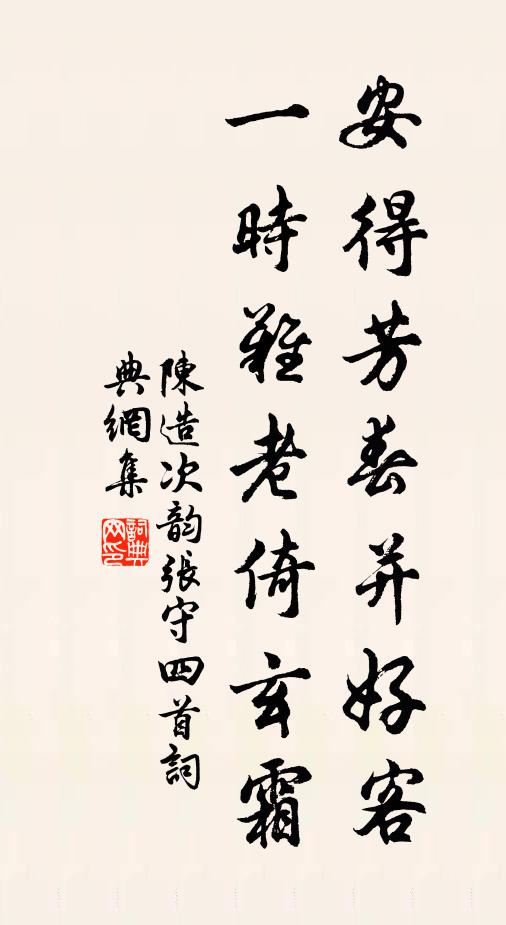 安得芳春并好客
一時難老倚玄霜
陳造次韵張守四首詞
典網集
詞典網印